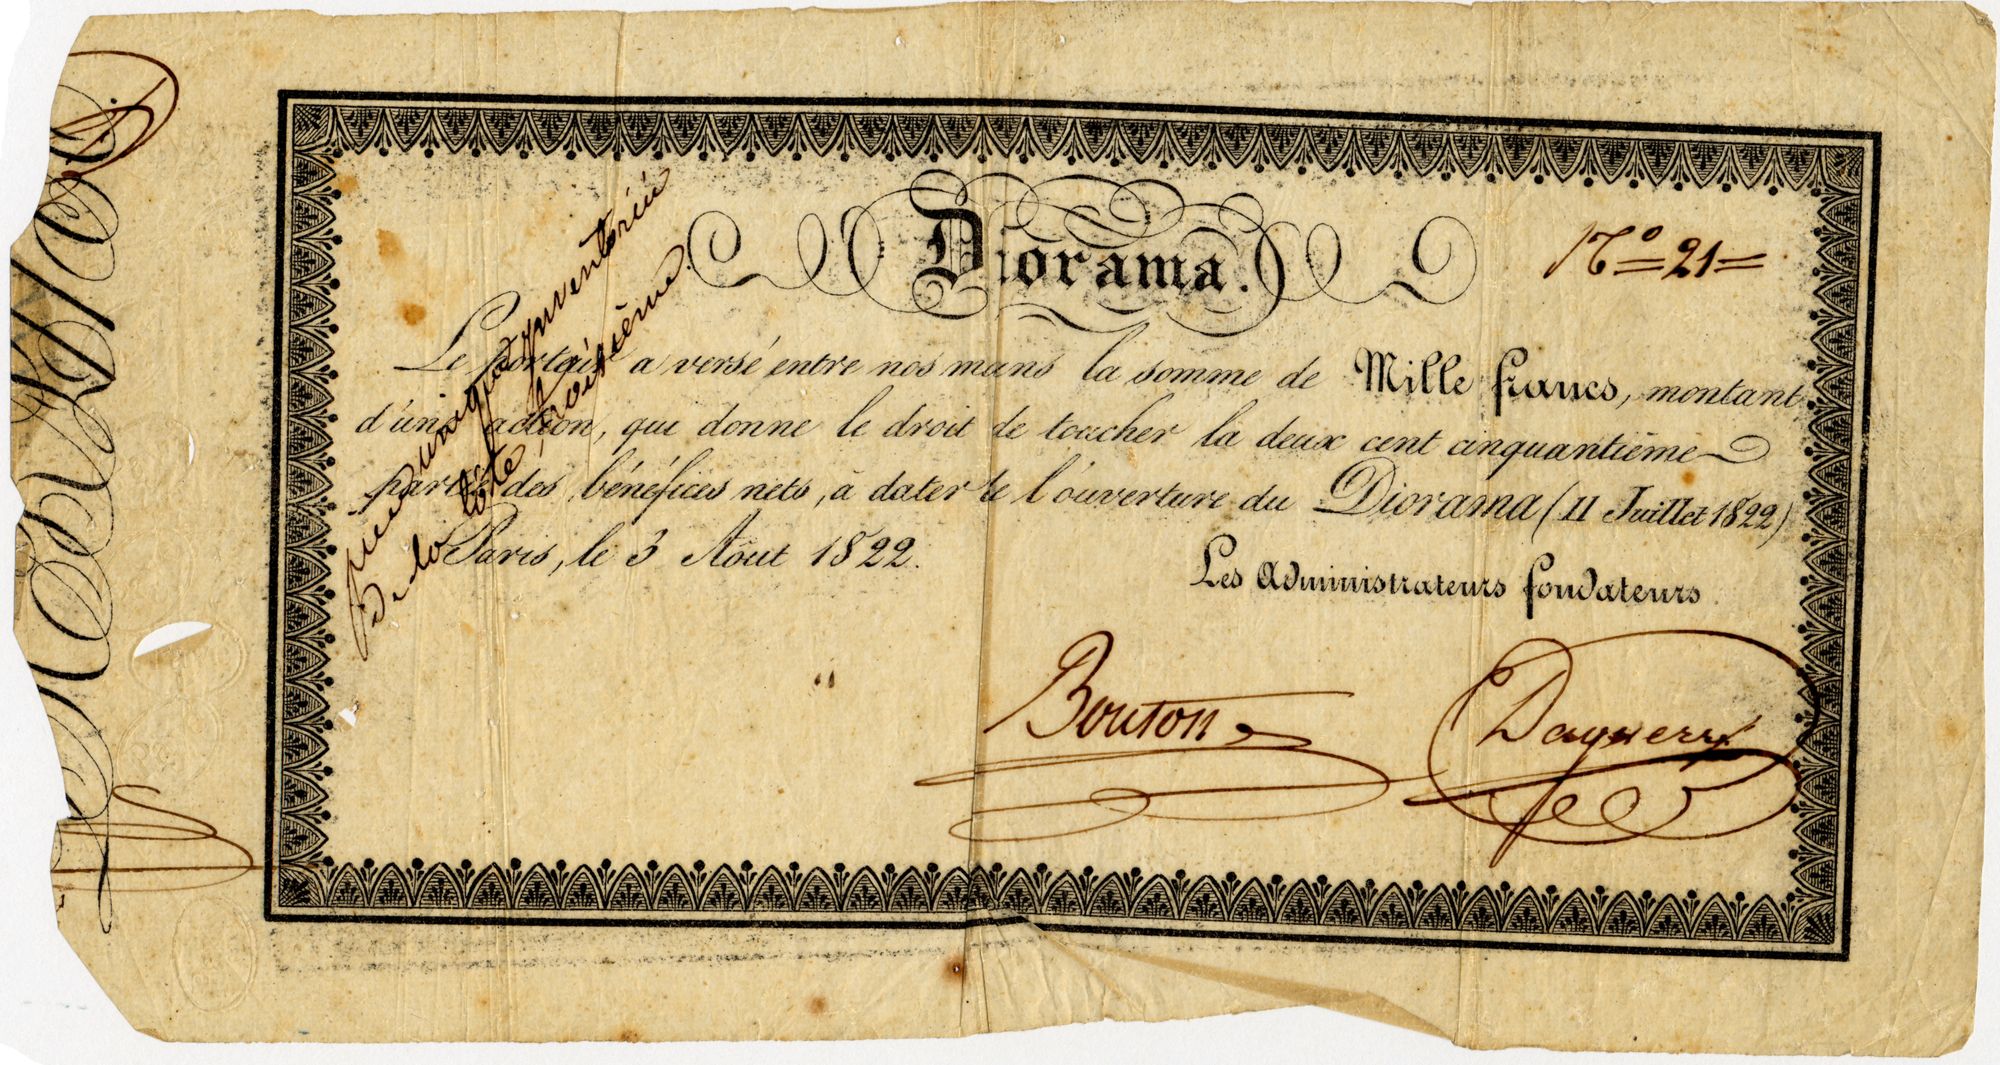 Diorama.
N° 21
Le porteur a versé entre nos mains la somme de Mille francs, montant
d'une action, qui donne le droit de toucher la deux cent cinquantième
partie des bénéfices nets, à dater de l'ouverture du Diorama (11 Juillet 1822)
Paris, le 3 Août 1822.
Les Administrateurs fondateurs
Bouton
Daguerre
inventoriée
de la côte troisième.